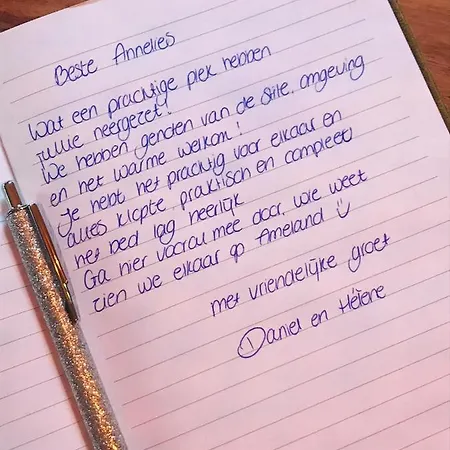 Beste Annelies
Wat een prachtige plek hebben
jullie neergezet!
We hebben genoten van de stilte, omgeving
en het warme welkom!
Je hebt het prachtig voor elkaar en
alles klopte, praktisch en compleet
het bed lag heerlijk
Ga hier vooral mee door, wie weet
zien we elkaar op Ameland
met vriendelijke groet
Daniel en Hélène